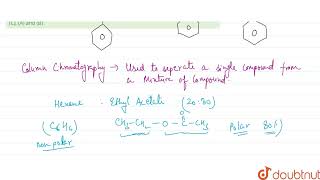 (C) (A) and (B)
Column Chromatography → Used to seperate a single compound from
a Mixture of Compound.
Hexane : Ethyl Acetate (20:80)
(C6H6) CH3-CH2-O-C-CH3 Polar 80%)
O
non polar
doubtnut